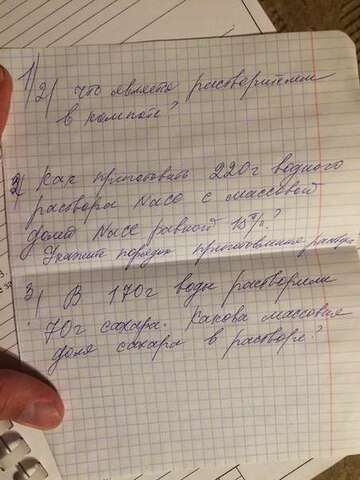 1/
2/ Что является растворителем
в компоте?
2/ Как приготовить 220г водного
раствора NaCl с массовой
долей NaCl равной 15%?
Укажите порядок приготовления раствора
3/ В 170г воды растворили
70г сахара. Какова массовая
доля сахара в растворе?